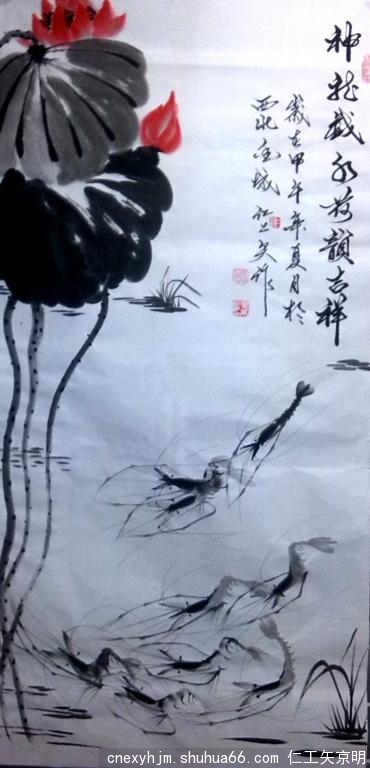 神龙戏水荷韻吉祥
歲在甲午年夏月於
西北金城 仁工矢作
cnexyhjm.shuhua66.com 仁工矢京明